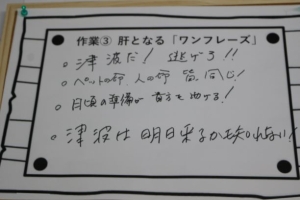 作業③ 肝となる「ワンフレーズ」
○ 津波だ! 逃げろ!!
○ ペットの命 人の命 皆同じ!
○ 日頃の準備が 貴方を助ける!
○ 津波は明日来るかも知れない!